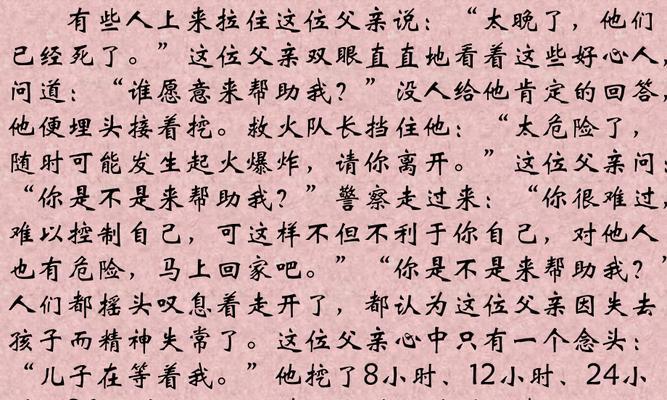 有些人上来拉住这位父亲说：“太晚了，他们
已经死了。”这位父亲双眼直直地看着这些好心人，
问道：“谁愿意来帮助我？”没人给他肯定的回答，
他便埋头接着挖。救火队长挡住他：“太危险了，
随时可能发生起火爆炸，请你离开。”这位父亲问：
“你是不是来帮助我？”警察走过来：“你很难过，
难以控制自己，可这样不但不利于你自己，对他人
也有危险，马上回家吧。”“你是不是来帮助我？”
人们都摇头叹息着走开了，都认为这位父亲因失去
孩子而精神失常了。这位父亲心中只有一个念头：
“儿子在等着我。”他挖了8小时、12小时、24小